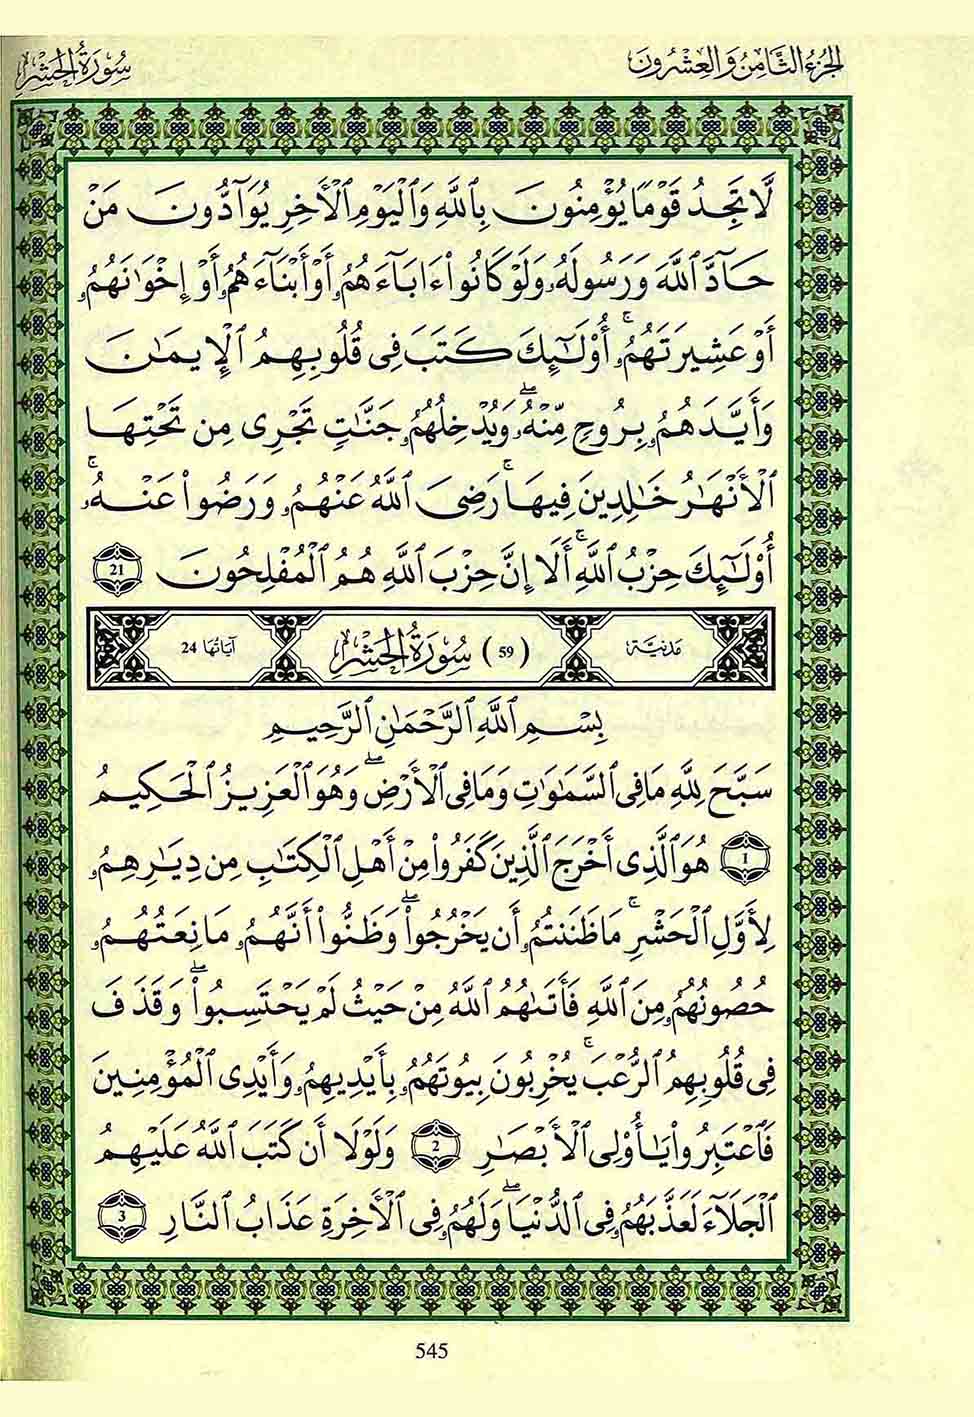 الجزء الثامن والعشرون
سورة الحشر
لَّا تَجِدُ قَوْمًا يُؤْمِنُونَ بِاللَّهِ وَالْيَوْمِ الْأَخِرِ يُوَآدُّونَ مَنْ
حَآدَّ اللَّهَ وَرَسُولَهُۥ وَلَوْ كَانُواْ ءَابَآءَهُمُۥ أَوْ أَبْنَآءَهُمُۥ أَوْ إِخْوَٰنَهُمُۥ
أَوْ عَشِيرَتَهُمُۥۚ أُوْلَٰٓئِكَ كَتَبَ فِى قُلُوبِهِمُ الْإِيمَٰنَ
وَأَيَّدَهُمُۥ بِرُوحٍ مِّنْهُۖ وَيُدْخِلُهُمُۥ جَنَّٰتٍ تَجْرِى مِن تَحْتِهَا
الْأَنْهَٰرُ خَٰلِدِينَ فِيهَاۚ رَضِىَ اللَّهُ عَنْهُمُۥ وَرَضُواْ عَنْهُۥۚ
أُوْلَٰٓئِكَ حِزْبُ اللَّهِۚ أَلَا إِنَّ حِزْبَ اللَّهِ هُمُ الْمُفْلِحُونَ 21
مدنية (59) سورة الحشر آياتها 24
بِسْمِ اللَّهِ الرَّحْمَٰنِ الرَّحِيمِ
سَبَّحَ لِلَّهِ مَا فِى السَّمَٰوَٰتِ وَمَا فِى الْأَرْضِۖ وَهُوَ الْعَزِيزُ الْحَكِيمُ
1 هُوَ الَّذِى أَخْرَجَ الَّذِينَ كَفَرُواْ مِنْ أَهْلِ الْكِتَٰبِ مِن دِيَٰرِهِمُۥ
لِأَوَّلِ الْحَشْرِۚ مَا ظَنَنتُمُۥ أَن يَخْرُجُواْۖ وَظَنُّواْ أَنَّهُمُۥ مَانِعَتُهُمُۥ
حُصُونُهُمُۥ مِنَ اللَّهِ فَأَتَىٰهُمُ اللَّهُ مِنْ حَيْثُ لَمْ يَحْتَسِبُواْۖ وَقَذَفَ
فِى قُلُوبِهِمُ الرُّعْبَۚ يُخْرِبُونَ بِيُوتَهُمُۥ بِأَيْدِيهِمُۥ وَأَيْدِى الْمُؤْمِنِينَ
فَاعْتَبِرُواْ يَٰأُوْلِى الْأَبْصَٰرِ 2 وَلَوْلَا أَن كَتَبَ اللَّهُ عَلَيْهِمُ
الْجَلَآءَ لَعَذَّبَهُمُۥ فِى الدُّنْيَاۖ وَلَهُمُۥ فِى الْأَخِرَةِ عَذَابُ النَّارِ 3
545